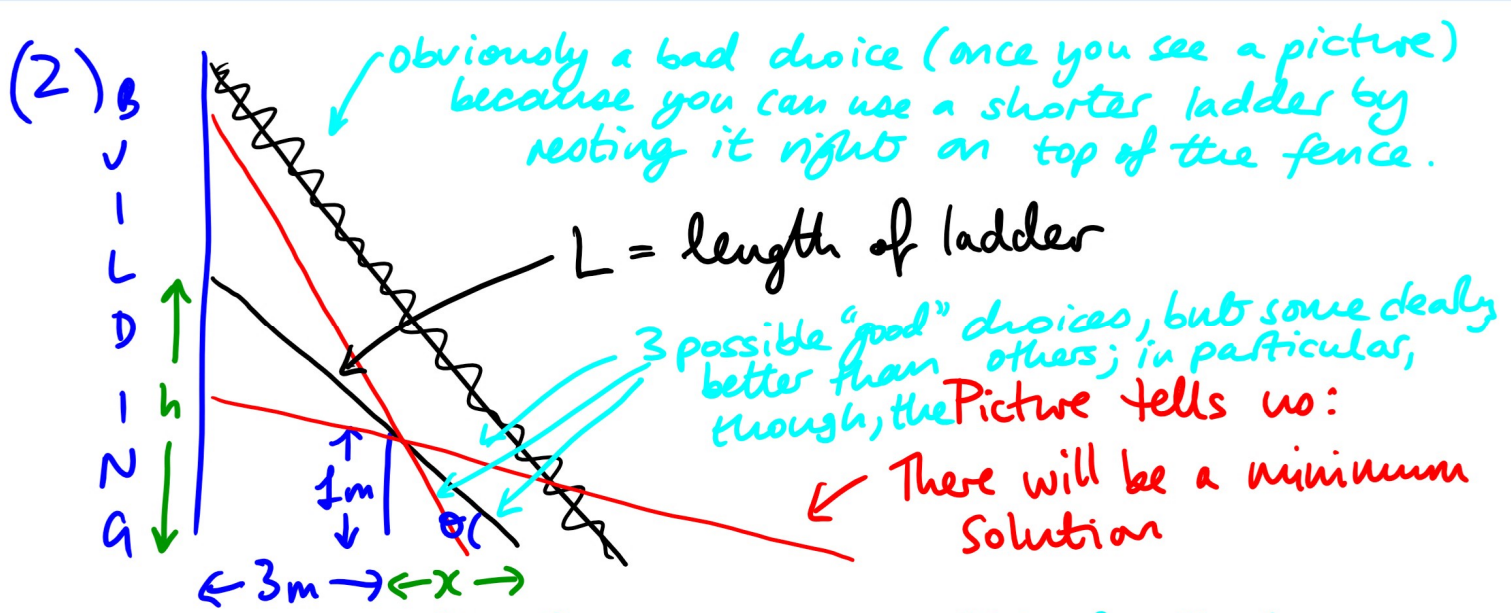 (2) BUILDING
obviously a bad choice (once you see a picture)
because you can use a shorter ladder by
resting it right on top of the fence.
L = length of ladder
3 possible "good" choices, but some clearly
better than others; in particular,
though, the Picture tells us:
There will be a minimum
solution
h
1m
θ
← 3m → ← x →